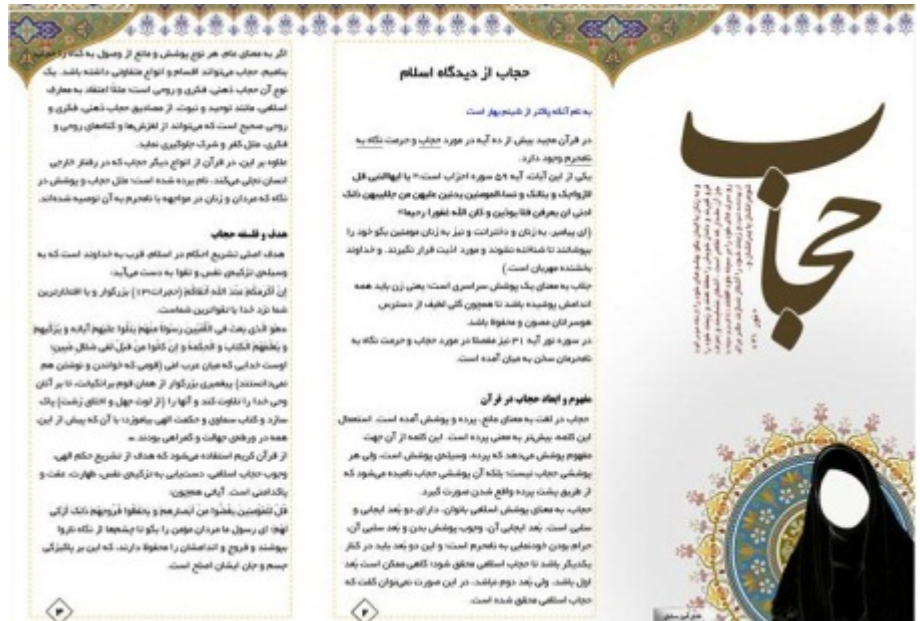 حجاب
حجاب از دیدگاه اسلام
به نام آنکه پاکتر از شبنم بهار است
در قرآن مجید بیش از ده آیه در مورد حجاب و حرمت نگاه به
نامحرم وجود دارد.
یکی از این آیات، آیه ۵۹ سوره احزاب است:« یا ایهاالنبی قل
لازواجک و بناتک و نساءالمومنین یدنین علیهن من جلابیبهن ذلک
ادنی ان یعرفن فلا یوذین و کان الله غفورا رحیما»
(ای پیامبر، به زنان و دخترانت و نیز به زنان مومنین بگو خود را
بپوشانند تا شناخته نشوند و مورد اذیت قرار نگیرند. و خداوند
بخشنده مهربان است.)
جلاب به معنای یک پوشش سراسری است؛ یعنی زن باید همه
اندامش پوشیده باشد تا همچون گلی لطیف از دسترس
هوسرانان مصون و محفوظ باشد.
در سوره نور آیه ۳۱ نیز مفصلا در مورد حجاب و حرمت نگاه به
نامحرمان سخن به میان آمده است.
مفهوم و ابعاد حجاب در قرآن
حجاب در لغت به معنای مانع، پرده و پوشش آمده است. استعمال
این کلمه، بیش‌تر به معنی پرده است. این کلمه از آن جهت
مفهوم پوشش می‌دهد که پرده، وسیله‌ی پوشش است، ولی هر
پوششی حجاب نیست؛ بلکه آن پوششی حجاب نامیده می‌شود که
از طریق پشت پرده واقع شدن صورت گیرد.
حجاب، به معنای پوشش اسلامی بانوان، دارای دو بُعد ایجابی و
سلبی است. بُعد ایجابی آن، وجوب پوشش بدن و بُعد سلبی آن،
حرام بودن خودنمایی به نامحرم است؛ و این دو بُعد باید در کنار
یکدیگر باشد تا حجاب اسلامی محقق شود؛ گاهی ممکن است بُعد
اول باشد، ولی بُعد دوم نباشد، در این صورت نمی‌توان گفت که
حجاب اسلامی محقق شده است.
۲
اگر به معنای عام، هر نوع پوشش و مانع از وصول به گناه را حجاب
بنامیم، حجاب می‌تواند اقسام و انواع متفاوتی داشته باشد. یک
نوع آن حجاب ذهنی، فکری و روحی است؛ مثلا اعتقاد به معارف
اسلامی، مانند توحید و نبوت، از مصادیق حجاب ذهنی، فکری و
روحی صحیح است که می‌تواند از لغزش‌ها و گناه‌های روحی و
فکری، مثل کفر و شرک جلوگیری نماید.
علاوه بر این، در قرآن از انواع دیگر حجاب که در رفتار خارجی
انسان تجلی می‌کند، نام برده شده است؛ مثل حجاب و پوشش در
نگاه که مردان و زنان در مواجهه با نامحرم به آن توصیه شده‌اند.
هدف و فلسفه حجاب
هدف اصلی تشریع احکام در اسلام، قرب به خداوند است که به
وسیله‌ی تزکیه‌ی نفس و تقوا به دست می‌آید:
إن أكرمكم عند الله أتقاكم (حجرات۱۳) بزرگوار و با افتخارترین
شما نزد خدا با تقواترین شماست.
هو الذی بعث فی الأمیین رسولا منهم یتلوا علیهم آیاته و یزکیهم
و یعلمهم الکتاب و الحکمة و إن کانوا من قبل لفی ضلال مبین؛
اوست خدایی که میان عرب امی (قومی که خواندن و نوشتن هم
نمی‌دانستند) پیغمبری بزرگوار از همان قوم برانگیخت، تا بر آنان
وحی خدا را تلاوت کند و آنها را (از لوث جهل و اخلاق زشت) پاک
سازد و کتاب سماوی و حکمت الهی بیاموزد؛ با آن که پیش از این،
همه در ورطه‌ی جهالت و گمراهی بودند.
از قرآن کریم استفاده می‌شود که هدف از تشریع حکم الهی،
وجوب حجاب اسلامی، دست‌یابی به تزکیه‌ی نفس، طهارت، عفت و
پاکدامنی است. آیاتی همچون:
قل للمؤمنین یغضوا من أبصارهم و یحفظوا فروجهم ذلک أزکی
لهم؛ ای رسول ما مردان مؤمن را بگو تا چشم‌ها از نگاه ناروا
بپوشند و فروج و اندامشان را محفوظ دارند، که این بر پاکیزگی
جسم و جان ایشان اصلح است.
۳